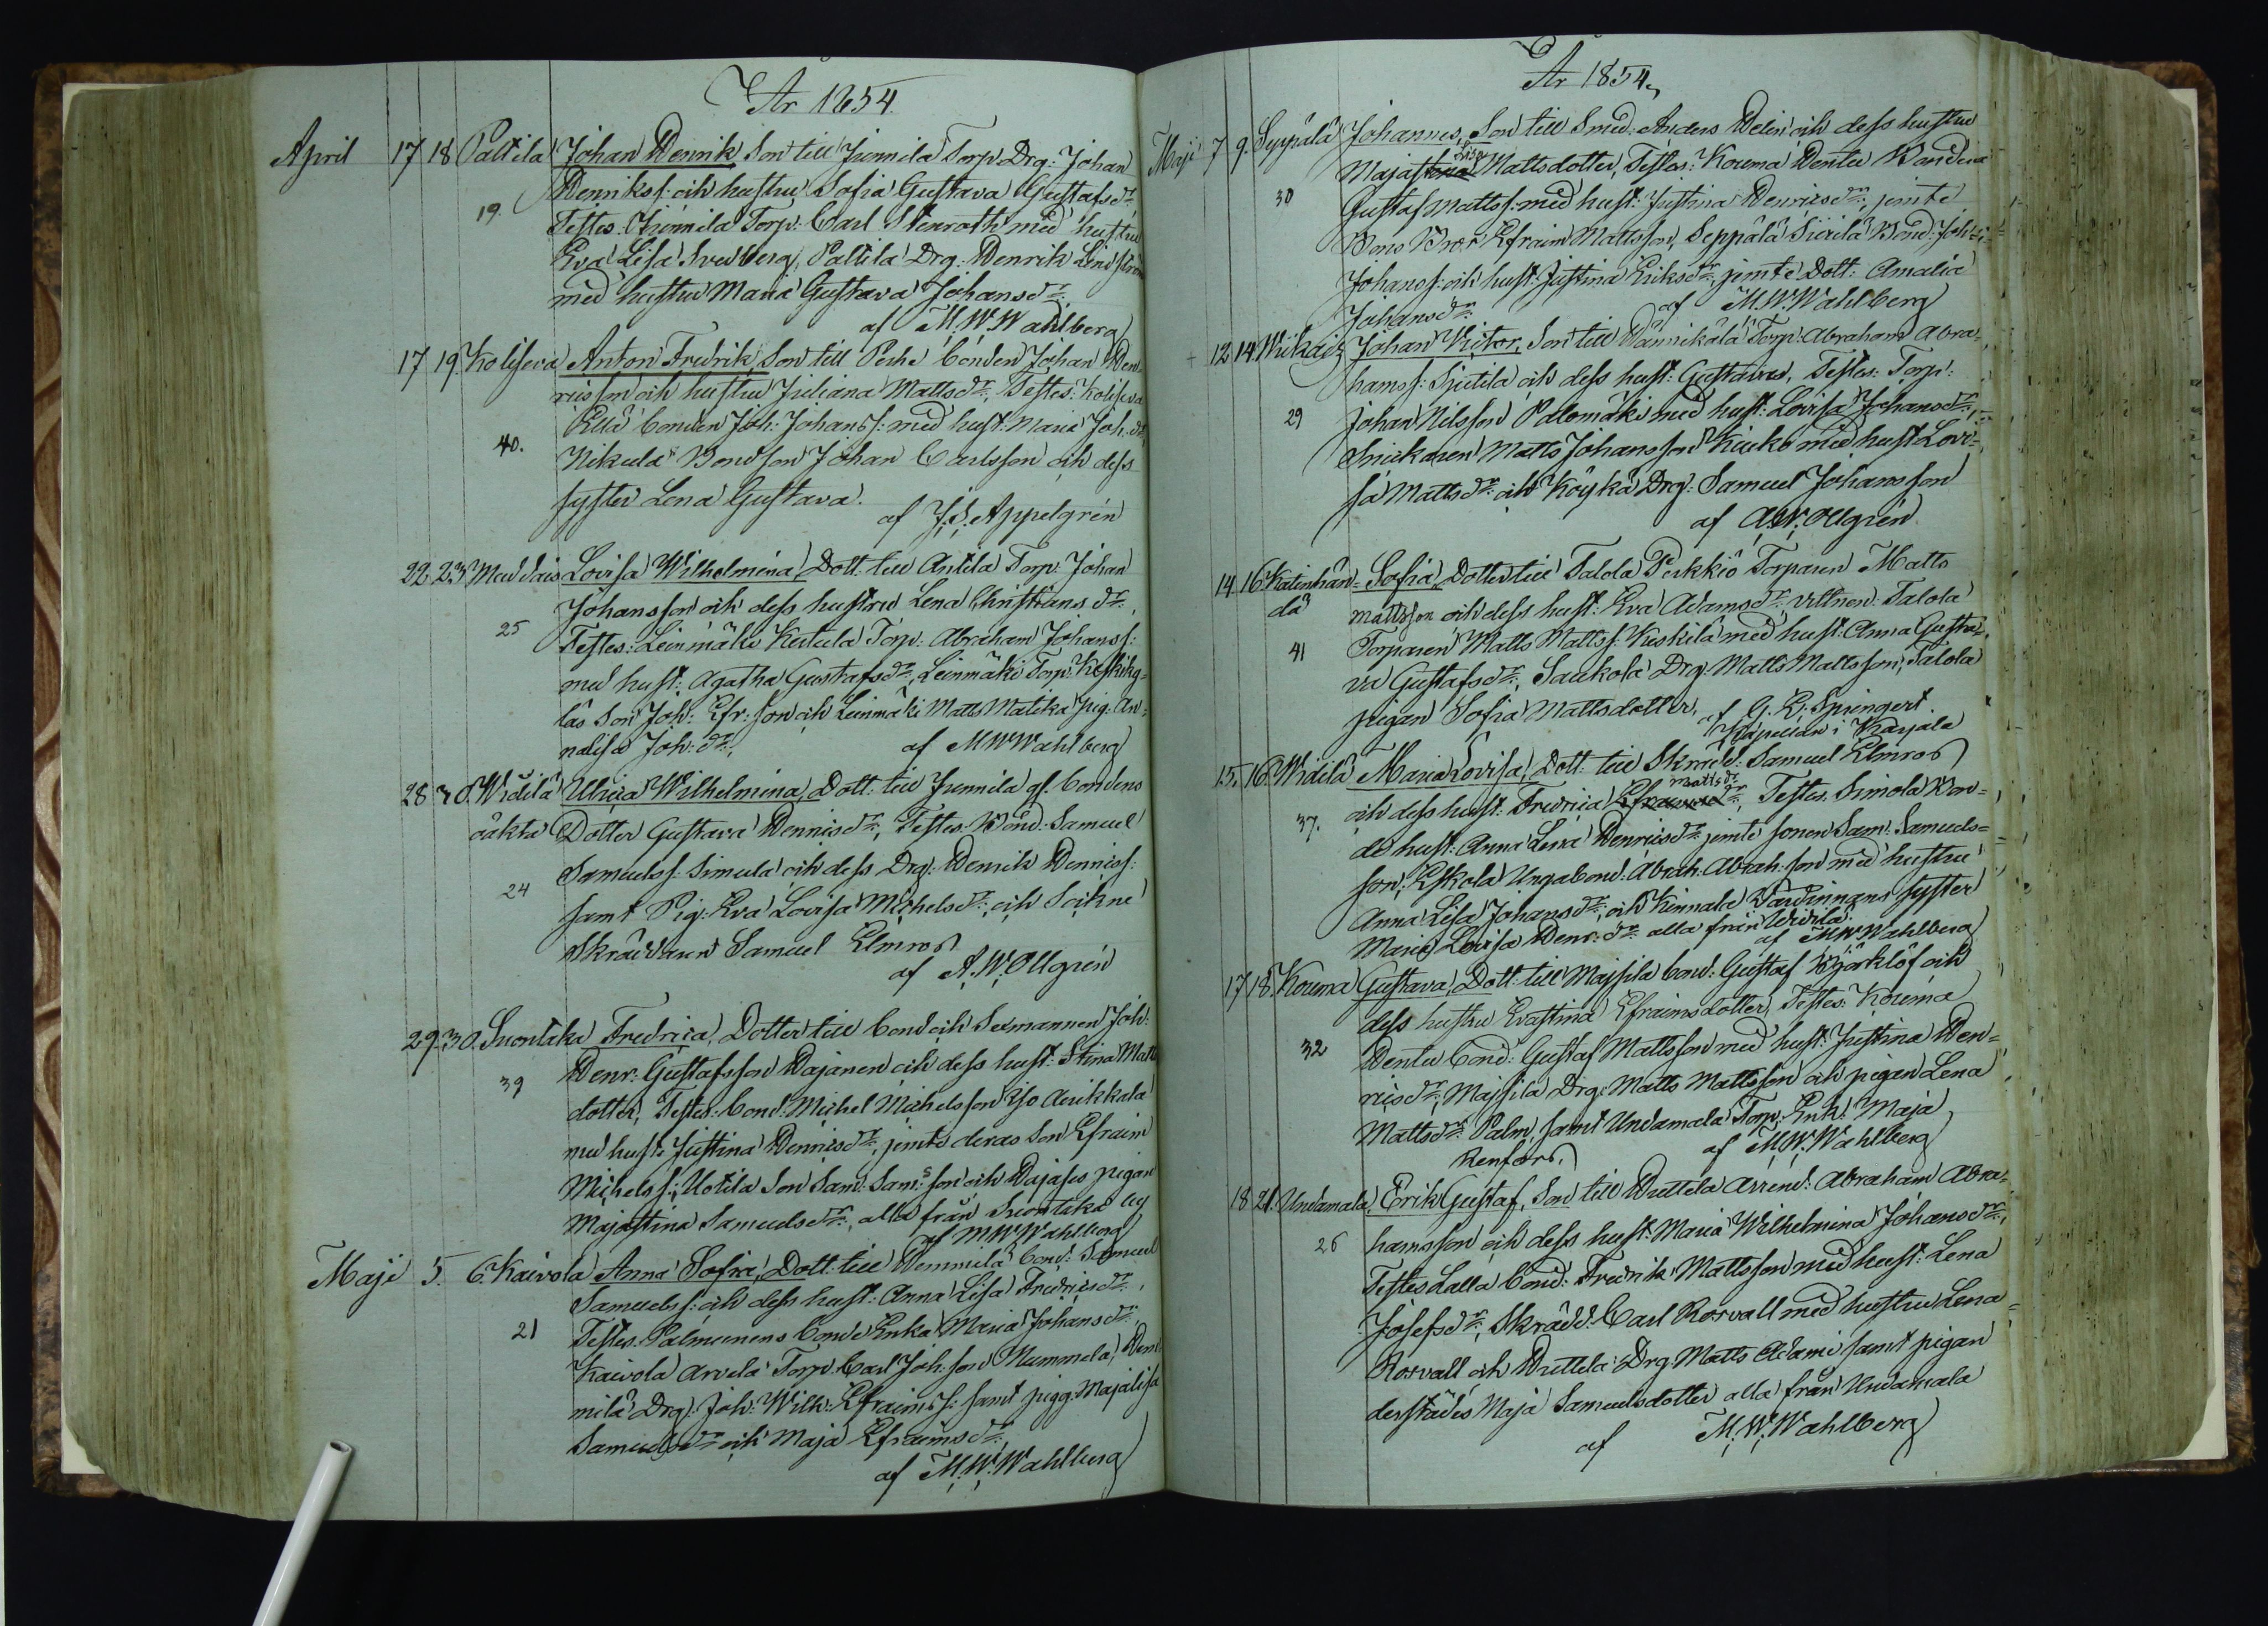 År 1854.
April 17 18 Paltila Johan Henrik Son till Junnila Torp. Drg: Johan
Henrikss: och hustru Sofia Gustava Gustafsdr
19. Testes. Junnila Torp: Carl Stenroth med hustru
Eva Lisa Svedberg, Paltila Drg. Henrik Lindström
med hustru Maria Gustava Johansdr
af M.W.Wahlberg
17 19 Koliseva Anton Fredrik, Son till bonden Johan Hen-
ricsson och hustru Juliana Mattsdr, Testes: Koliseva
bonden Joh: Johanss: med hust: Maria Joh:dr
40. Nikula Bondson Johan Carlsson och dess
syster Lena Gustava.
af J.S.Appelgren
22 23 Lovisa Wilhelmina, Dott: till Antila Torp. Johan
Johansson och dess hustru Lena Christiansdr
25 Testes: Leinmäki Torp: Abraham Johanss:
med hust: Agatha Gustafsdr, Leinmäki Torp:
läs Son Joh: Efr:son och Leinmäki Matts Matika pig: An-
nalisa Joh:dr,
af MWWahlberg
28 30. Widilä Ulrica Wilhelmina, Dott: till Junnila gl. bondens
oäkta Dotter Gustava Henricsdr, Testes. Bond: Samuel
Samuelss: Simula och dess Drg: Henrik Henricss:
24 samt Pig: Eva Lovisa Michelsdr, och Sockne
Skräddaren Samuel Elmros
af A.W.Ollgren
29. 30. Suontaka Fredrica, Dotter till bond och Sexmannen Joh:
Henr: Gustafsson Dajanen och dess hust: Stina Matts
39 dotter, Testes: bond: Michel Michelsson Yjo Aerikkala
med hust: Justina Henricsdr, jemte deras Son Efraim
Michelss:, Uotila Son Sam: Sam:s son och pigan
Majastina Samuelsdr, alla från Suontaka by
af MWWahlberg
Maji 5. 6. Kaivola Anna Sofia, Dott: till Hemmilä bond: Samuel
Samuelss: och dess hust: Anna Lisa Fredricsdr,
21 Testes. Palmumens bonde Enka Maria Johansdr
Kaivola Arvela Torp: Carl Joh:son Mummela, Hem-
milä Drg: Joh: Wilh: Efraimss: samt pigg: Majalisa
Samuelsdr och Maja Efraimsdr,
af M.W.Wahlberg
År 1854.
Maji 7 9. Seppälä Johannes, Son till Smed: Anders Helin och dess hustru
Lisa
Majastina Mattsdotter, Testes: Kouma Hentu Bonden
30 Gustaf Mattss: med hust: Justina Henricsdr, jemte
Efraim Mattsson, Seppälä Sicilä Bond: Joh:
Johanss: och hust: Justina Eriksdr, jemte Dott: Amalia
Johansdr
af M.W.Wahlberg
12 14. Johan Victor, Son till Wännikälä Torp: Abraham Abra-
hamss: och dess hust: Gustava, Testes: Torp:
29 Johan Nilsson Palomäki med hust: Lovisa Johansdr,
Snickaren Matts Johansson med hust Lovi-
sa Mattsdr och Köykä Drg: Samuel Johansson
af A.W.Ollgren
14. 16. Katinhän- Sofia, Dotter till Talola Perkkiö Torparen Matts
dä Mattsson och dess hust: Eva Adamsdr, vittnen: Talola
41 Torparen Matts Mattss: Kuskilä med hust: Anna Gusta-
va Gustafsdr, Saukola Drg: Matts Mattsson, Talola
pigan Sofia Mattsdotter.
af G. E. Springert.
Kapellan i Karjala
15. 16. Widilä Maria Lovisa, Dott: till Skrädd: Samuel Elmros
Mattsdr
37. och dess hust: Fredrica Efraimsdr, Testes. Simola Bon-
de hust: Anna Lena Henricsdr jemte sonen Sam: Samuels-
son, Eskola Ungabond: Abrah: Abrah:son med hustru
Anna Lisa Johansdr, och Kinnala Värdinnans syster
Maria Lovisa Henr:dr alla från Widilä.
af MWWahlberg
17 18. Kouma Gustava, Dott: till Majsila bond: Gustaf Björklöf och
dess hustru Evastina Efraimsdotter, Testes: Kouma
32 Hentu bond: Gustaf Mattsson med hust: Justina Hen-
ricsdr, Majsila Drg: Matts Mattsson och pigan Lena
Mattsdr Palm, samt Undamala Torp: Enk: Maja
Renfors.
af M.W.Wahlberg
18 21. Undamala, Erik Gustaf, Son till Huttela Arrend: Abraham Abra-
26 hamsson och dess hust: Maria Wilhelmina Johansdr,
Testes Lalla bond: Fredrik Mattsson med hust: Lena
Josefsdr, Skrädd: Carl Rosvall med hustru Lena
Rosvall och Huttela Drg: Matts Adami samt pigan
derstädes Maja Samuelsdotter alla från Undamala
af M.W.Wahlberg